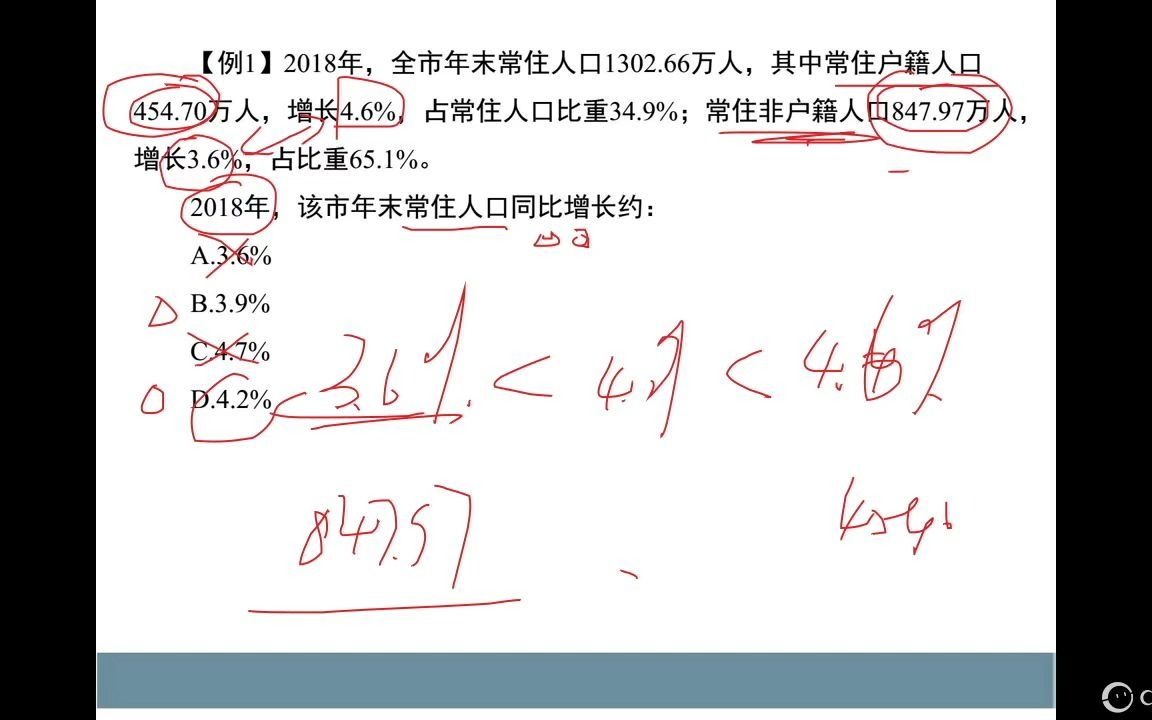 【例1】2018年，全市年末常住人口1302.66万人，其中常住户籍人口
454.70万人，增长4.6%，占常住人口比重34.9%；常住非户籍人口847.97万人，
增长3.6%，占比重65.1%。
2018年，该市年末常住人口同比增长约：
A.3.6%
B.3.9%
C.4.7%
D.4.2%
3.6% < 4.1% < 4.6%
847.97